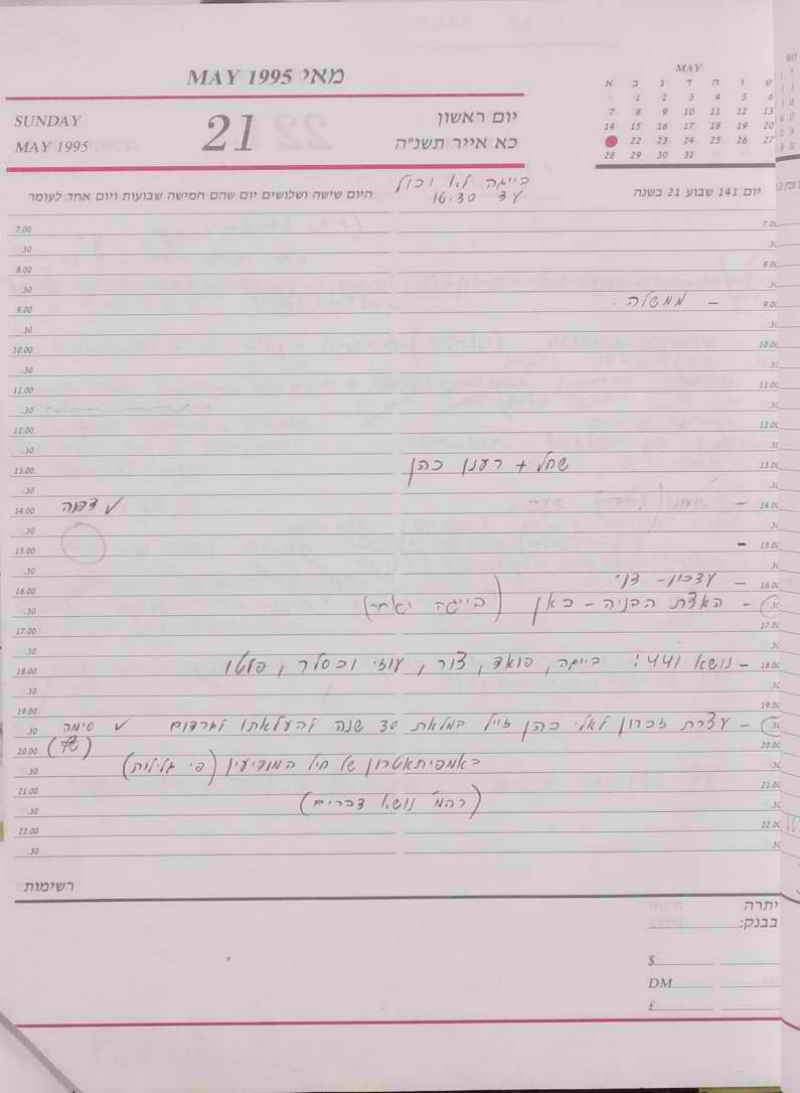 מאי 1995 MAY
SUNDAY
MAY 1995
21
יום ראשון
כא אייר תשנ"ה
MAY
א ב ג ד ה ו ש
1 2 3 4 5 6
7 8 9 10 11 12 13
14 15 16 17 18 19 20
22 23 24 25 26 27
28 29 30 31
יום 141 שבוע 21 בשנה
בייגה לא יכול
עד 16.30
היום שישה ושלושים יום שהם חמישה שבועות ויום אחד לעומר
7.00
.30
8.00
.30
9.00 - ממשלה
.30
10.00
.30
11.00
.30
12.00
.30
13.00 שחל + רענן כהן
.30
14.00 - ✓ דפנה
.30
15.00 -
.30
16.00 - עדכון - דני
.30 - האצת הבניה - כאן (בייגה יאחר)
17.00
.30
18.00 - נושא 441: בייגה, פואד, צור, עוזי וכסלר, פלטו
.30
19.00
.30 - עצרת זכרון לאלי כהן ז"ל במלאת 30 שנה להעלאתו לגרדום ✓ סימה
20.00
באמפיתאטרון של חיל המודיעין (פי גלילות)
.30
21.00
(רהמ' נושא דברים)
.30
22.00
.30
רשימות
יתרה
בבנק:
$
DM
£